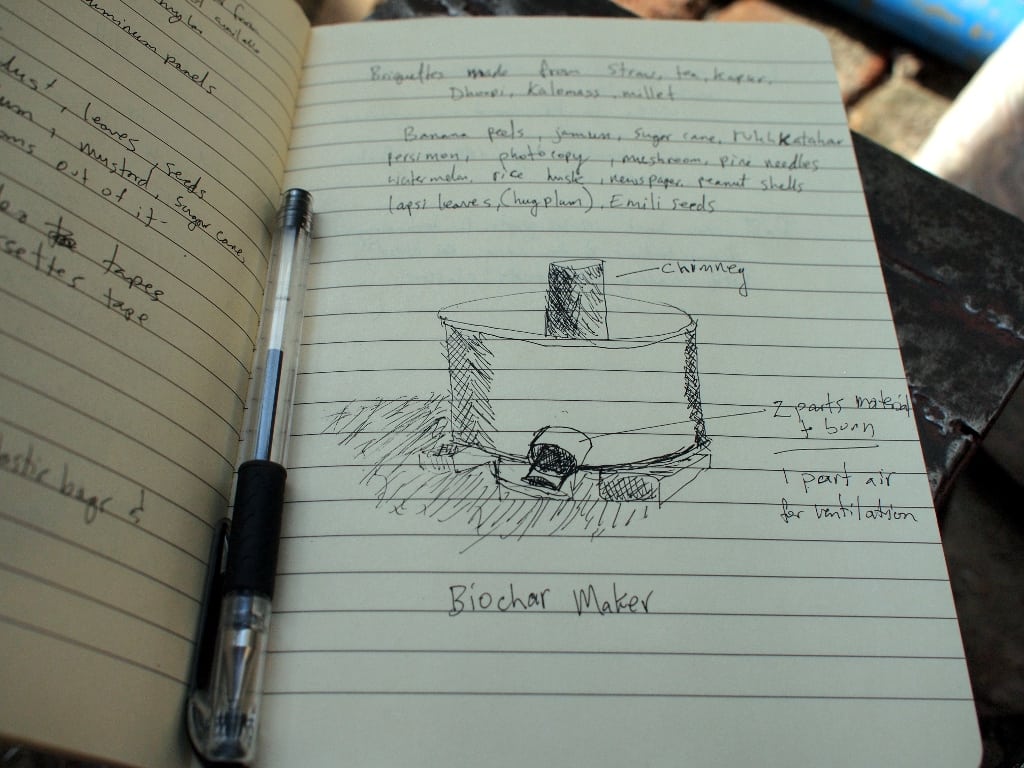 from
available
aluminum panels
dust, leaves, seeds
mustard, sugar cane,
out of it.
tapes
tape
plastic bags &
Briquettes made from Straw, tea, kapur,
Dhoopi, Kalomass, millet
Banana peels, jamun, sugar cane, rukh katahar
persimon, photocopy, mushroom, pine needles
watermelon, rice husk, newspaper, peanut shells
lapsi leaves, (hugplum), Emili seeds
chimney
2 parts material
to burn
1 part air
for ventilation
Biochar Maker